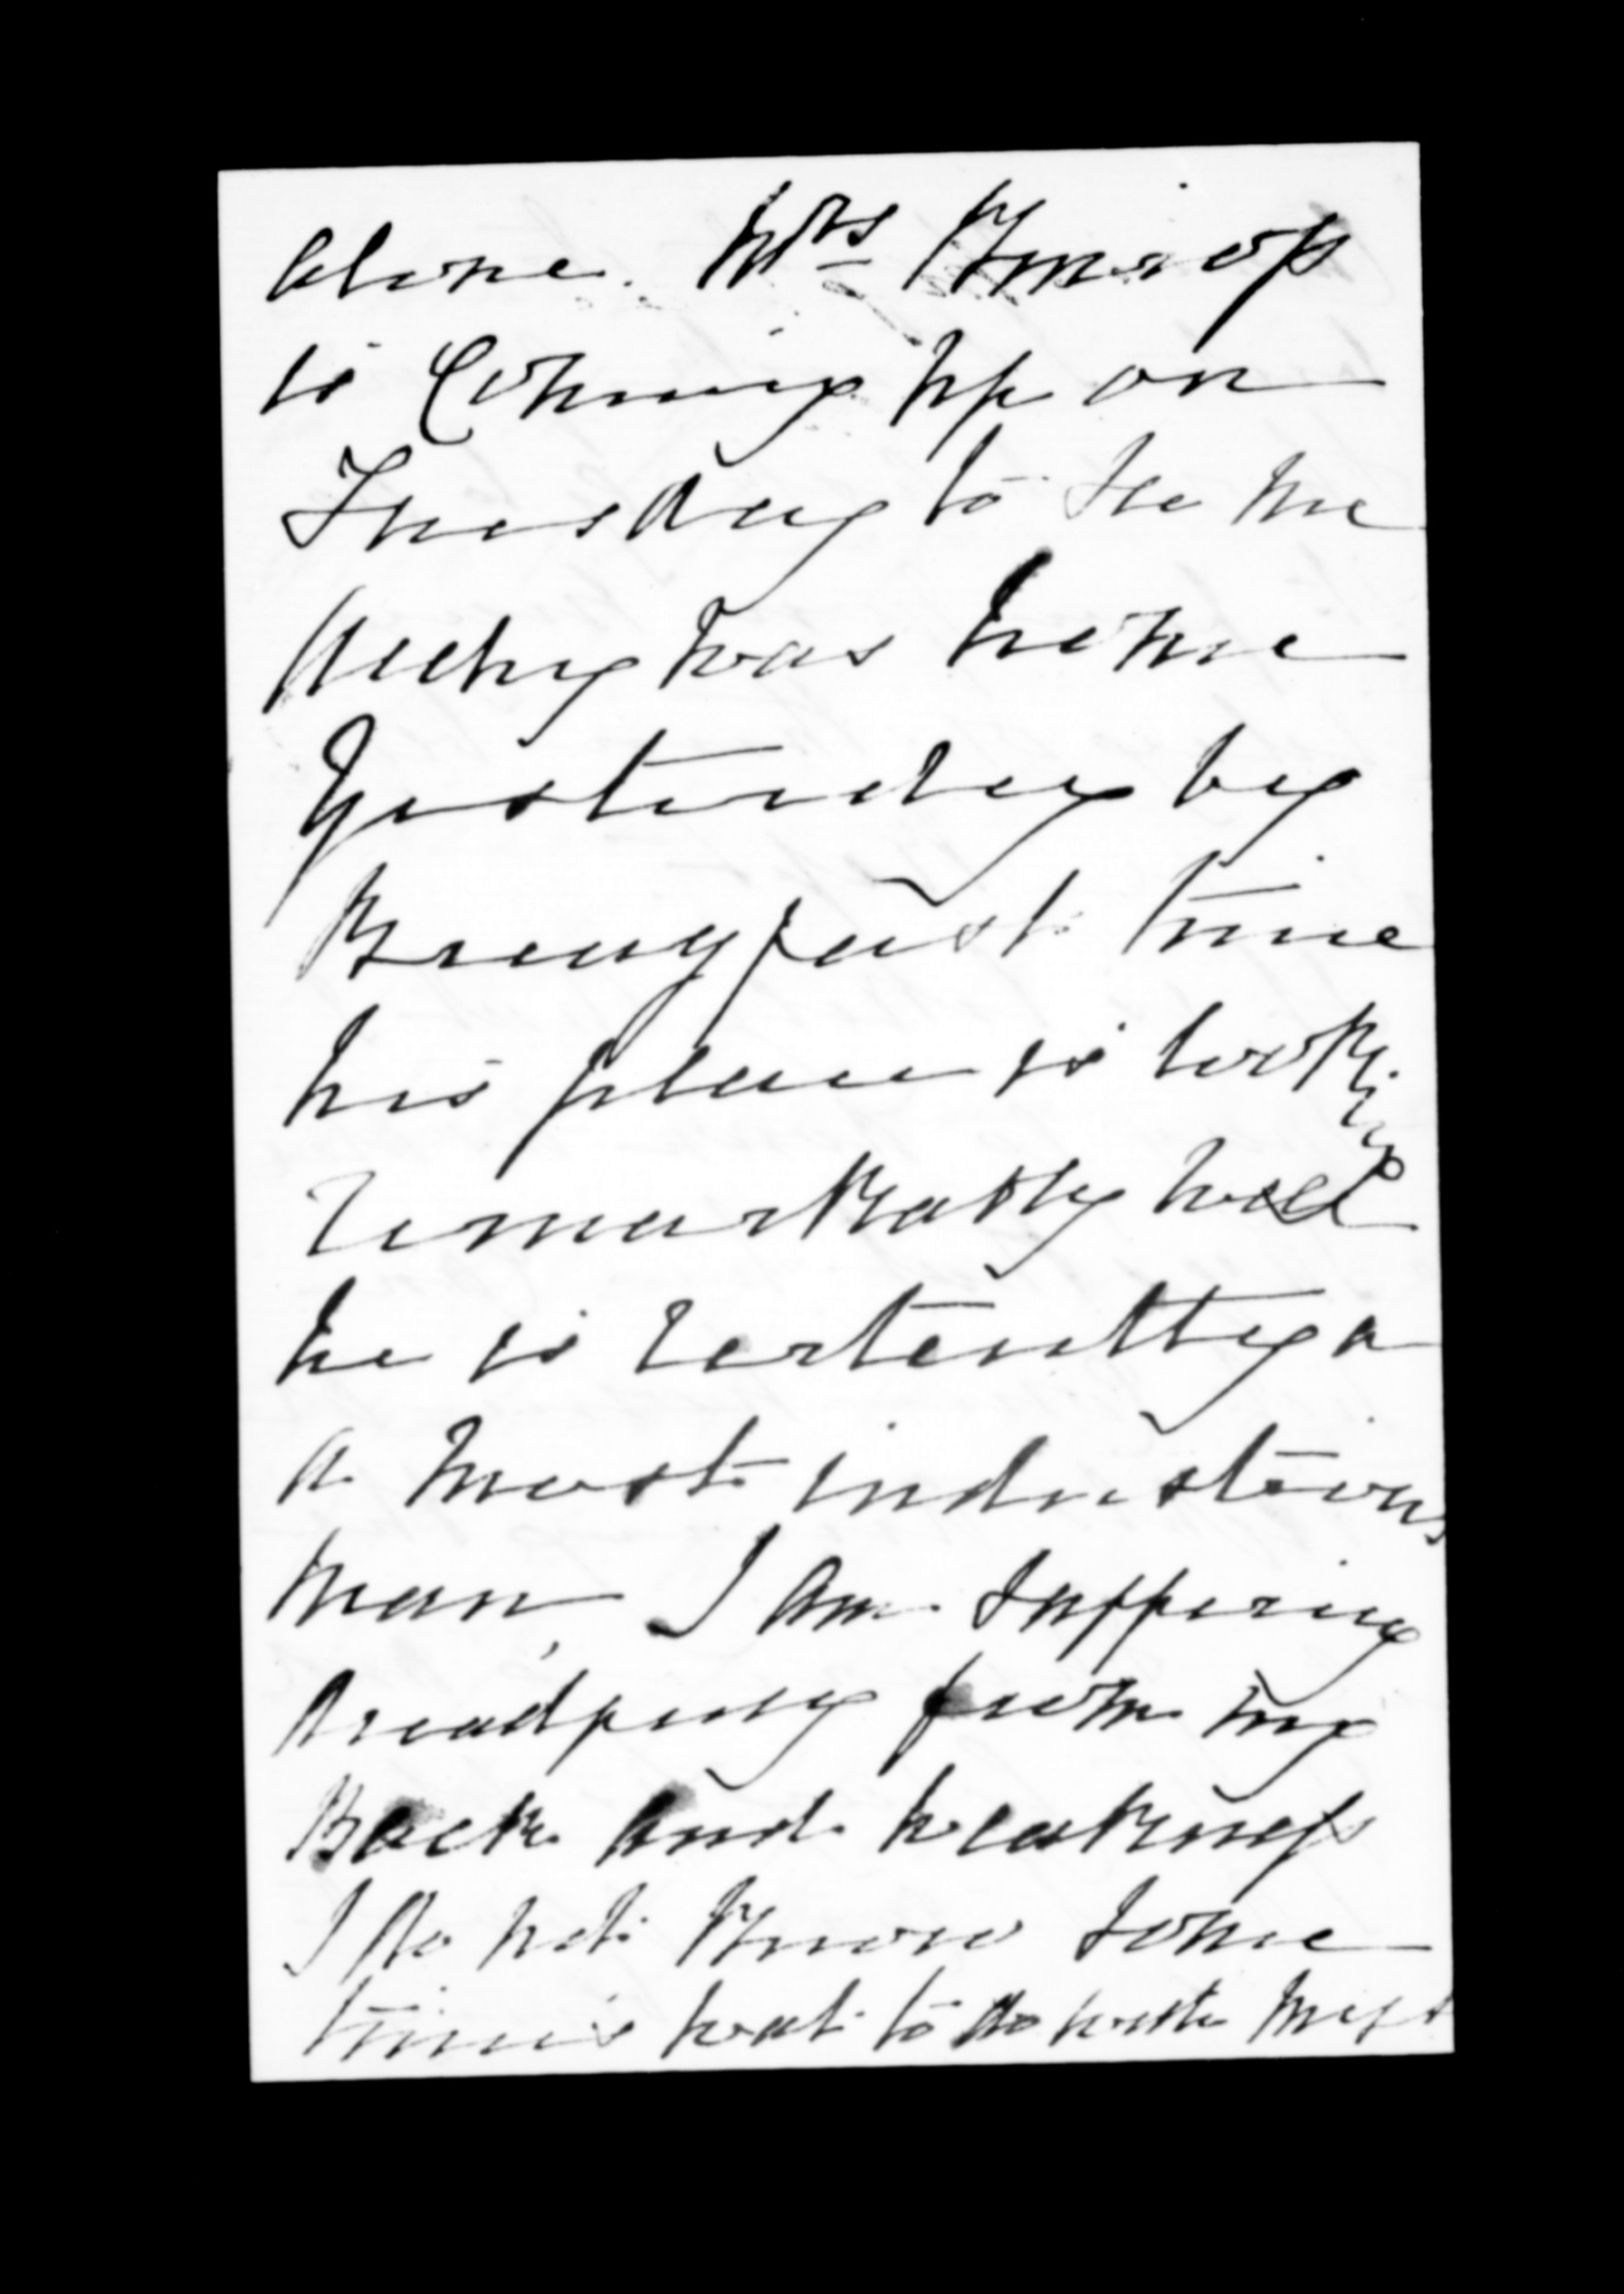 alone. Mrs Kinross
is Coming up on
Tuesday to See me
Archy was home
Yesterday by
Breayfast time
his place is looking
remarkably well
he is certently a
a most industrious
man, I am Suffering
dreadfuly from my
Back and weakness
I do not Know Some
times wat to do with myself